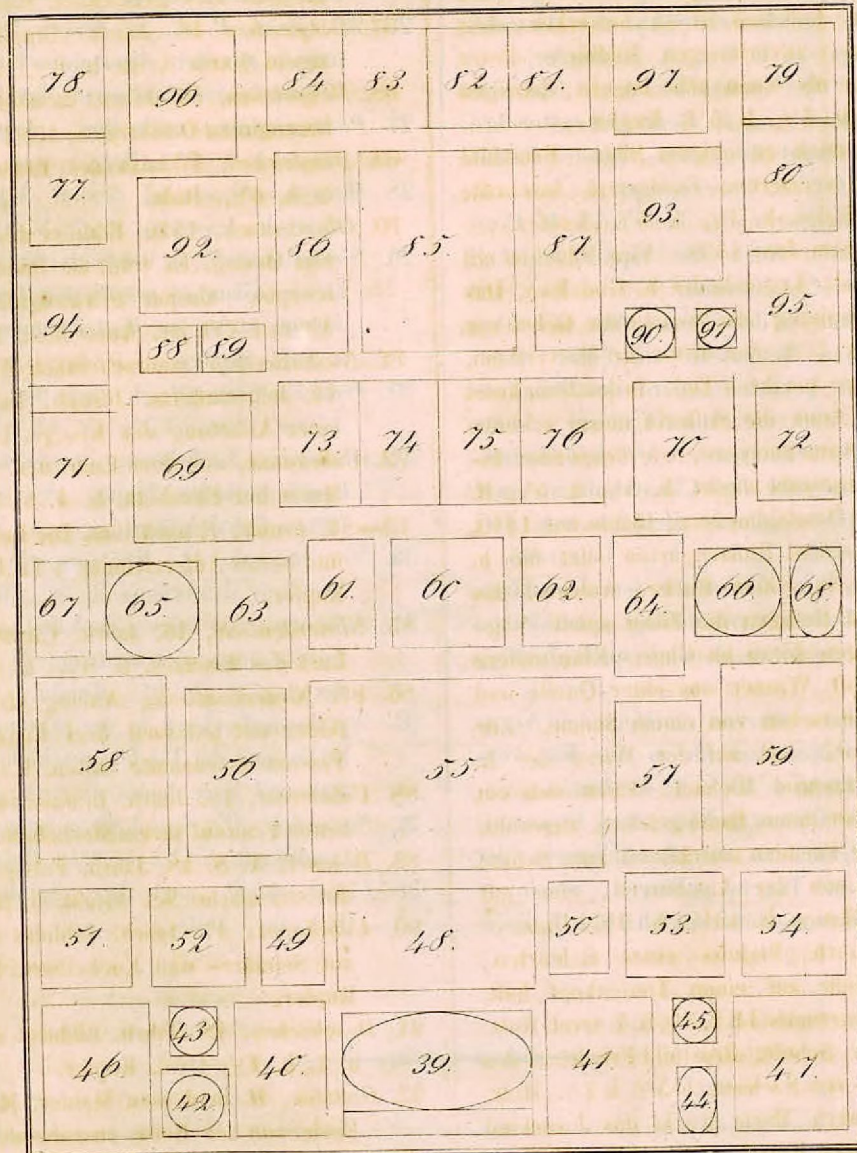 78. 96. 84. 83. 82. 81. 97. 79.
77. 80.
92. 86. 85. 87. 93.
94. 88 89 90. 91. 95.
71. 69. 73. 74. 75. 76. 70. 72.
67. 65. 63. 61. 60. 62. 64. 66. 68.
58. 56. 55. 57. 59.
51. 52. 49. 48. 50. 53. 54.
46. 43. 40. 39. 41. 45. 47.
42. 44.